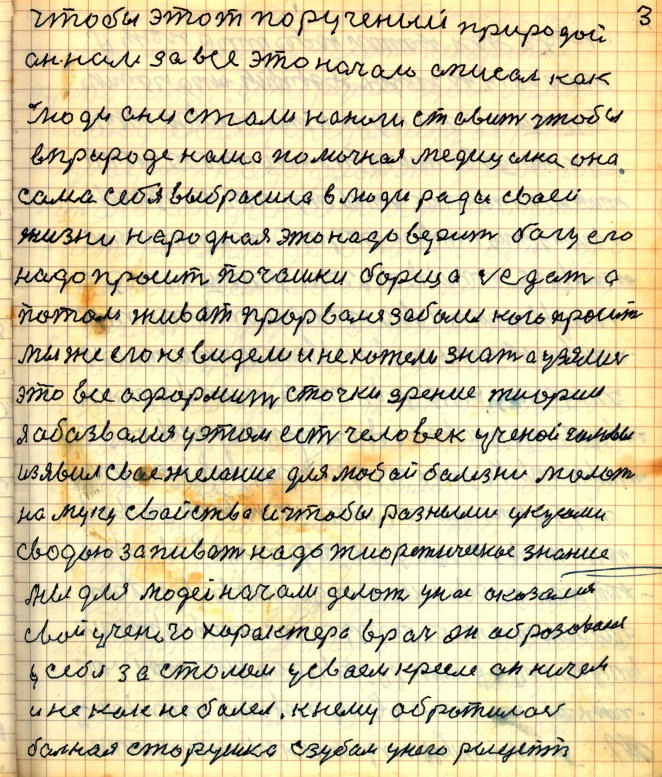 3
чтобы этот порученый природой
он нам за все это начало списал как
люди они стали наноги ставит чтобы
в природе наша помочная медицина она
сама себя выбросила в люди ради своей
жизни народная это надо верит богу его
надо просит по чашки борща уедат а
потом живат прорвался заболел кого просит
мы же его не видели и не хотели знат а узялис
это все аформит сточки зрение тиории
я абазвался у этом ест человек ученой головы
изявил свае желание для любой болезни молот
на муку свойства и чтобы разными укусами
с водою запиват надо тиоретическое знание
для людей начали делат у нас оказался
свой ученого характера врач он образовался
у себя за столом у своем кресле он ничем
и не как не болел. к нему обротилас
болная старушка с зубам у него рецепт